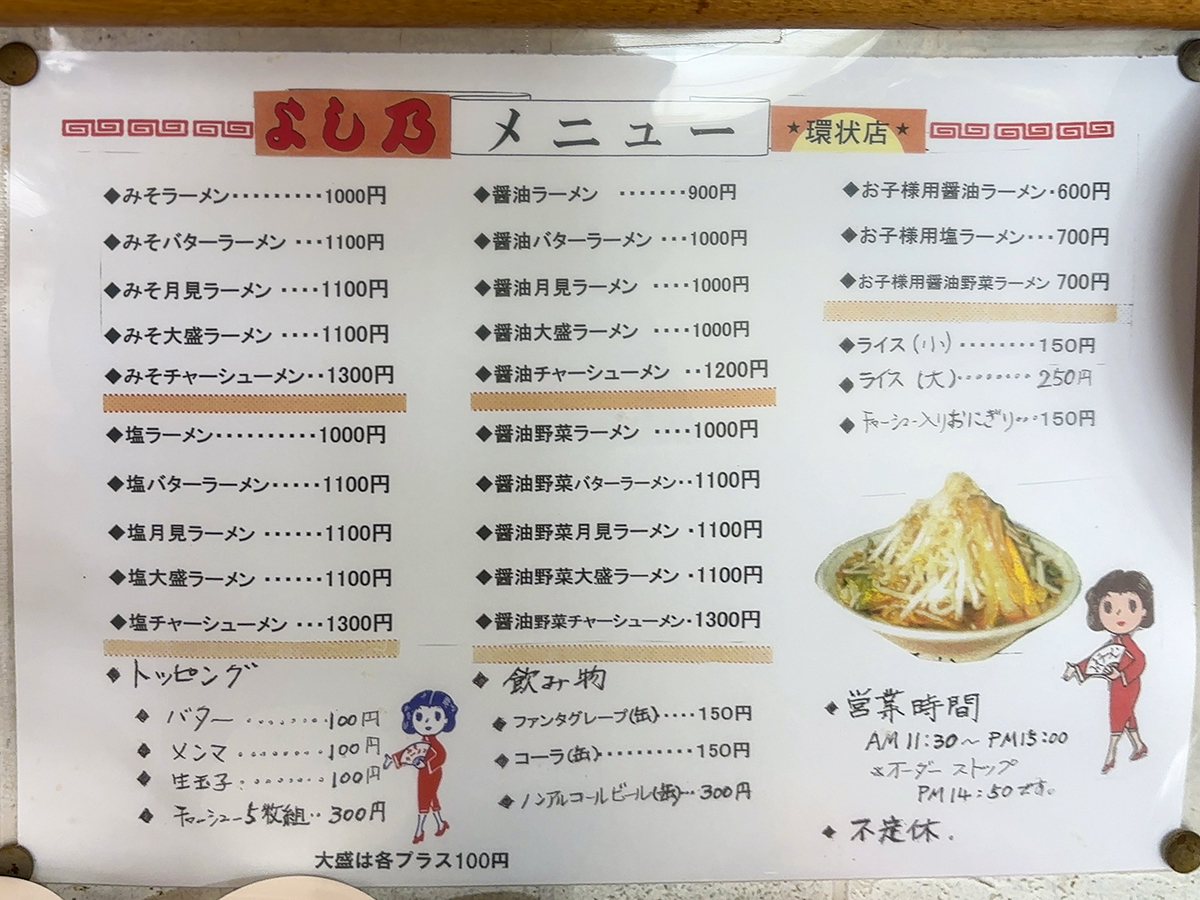 よし乃 メニュー ★環状店★
◆みそラーメン・・・・・・・・・1000円
◆みそバターラーメン ・・・1100円
◆みそ月見ラーメン ・・・・1100円
◆みそ大盛ラーメン ・・・・1100円
◆みそチャーシューメン・・1300円
◆塩ラーメン・・・・・・・・・・1000円
◆塩バターラーメン・・・・・1100円
◆塩月見ラーメン ・・・・・・1100円
◆塩大盛ラーメン ・・・・・・1100円
◆塩チャーシューメン ・・・1300円
◆トッピング
◆バター・・・・・・・・100円
◆メンマ・・・・・・・・・100円
◆生玉子・・・・・・・・・100円
◆チャーシュー5枚組・・300円
◆醤油ラーメン ・・・・・・・900円
◆醤油バターラーメン ・・・1000円
◆醤油月見ラーメン ・・・・1000円
◆醤油大盛ラーメン ・・・・1000円
◆醤油チャーシューメン ・・1200円
◆醤油野菜ラーメン ・・・・1000円
◆醤油野菜バターラーメン・・1100円
◆醤油野菜月見ラーメン ・1100円
◆醤油野菜大盛ラーメン ・1100円
◆醤油野菜チャーシューメン・1300円
◆飲み物
◆ファンタグレープ(缶)・・・・150円
◆コーラ(缶)・・・・・・・・・150円
◆ノンアルコールビール(缶)・・・300円
大盛は各プラス100円
◆お子様用醤油ラーメン・600円
◆お子様用塩ラーメン・・・700円
◆お子様用醤油野菜ラーメン 700円
◆ライス(小)・・・・・・・・150円
◆ライス(大)・・・・・・・・250円
◆チャーシュー入りおにぎり・・・150円
◆営業時間
AM11:30〜PM15:00
※オーダーストップ
PM14:50です。
◆不定休.